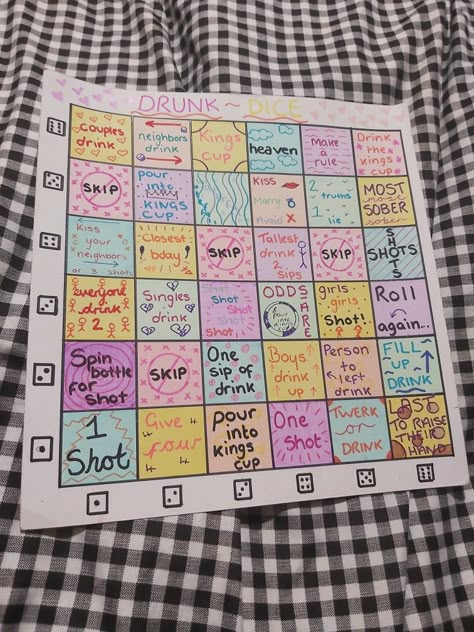 DRUNK ~ DICE
couples
drink
neighbors
drink
Kings
cup
heaven
make
a
rule
Drink
the
kings
cup
SKIP
pour
into
KINGS
CUP.
KISS
Marry
Avoid X
2
truths
1
lie
MOST
most
SOBER
sober
Kiss
your
neighbors
or 3 shots
Closest
bday
SKIP
Tallest
drink
2
SIPS
SKIP
SHOTS
SHOTS
everyone
drink
2
Singles
drink
Shot
Shot
Shot
Shot
Shot
ODDS
ARE
pour into
kings
cup
girls
girls
Shot!
Roll
again...
Spin
bottle
for
shot
SKIP
One
sip of
drink
Boys
drink
up
Person
to
left
drink
FILL
UP
DRINK
1
Shot
Give
four
pour
into
kings
cup
One
Shot
TWERK
or
DRINK
LAST
TO RAISE
THEIR
HAND